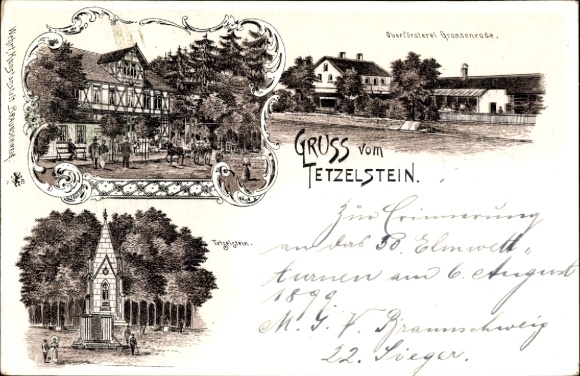 Oberförsterei Grossenrode.
GRUSS vom
TETZELSTEIN.
Tetzelstein.
Zur Erinnerung
an das 50. Elmwett„
turnen am 6. August
1899
M. T. V. Braunschweig
22. Sieger.